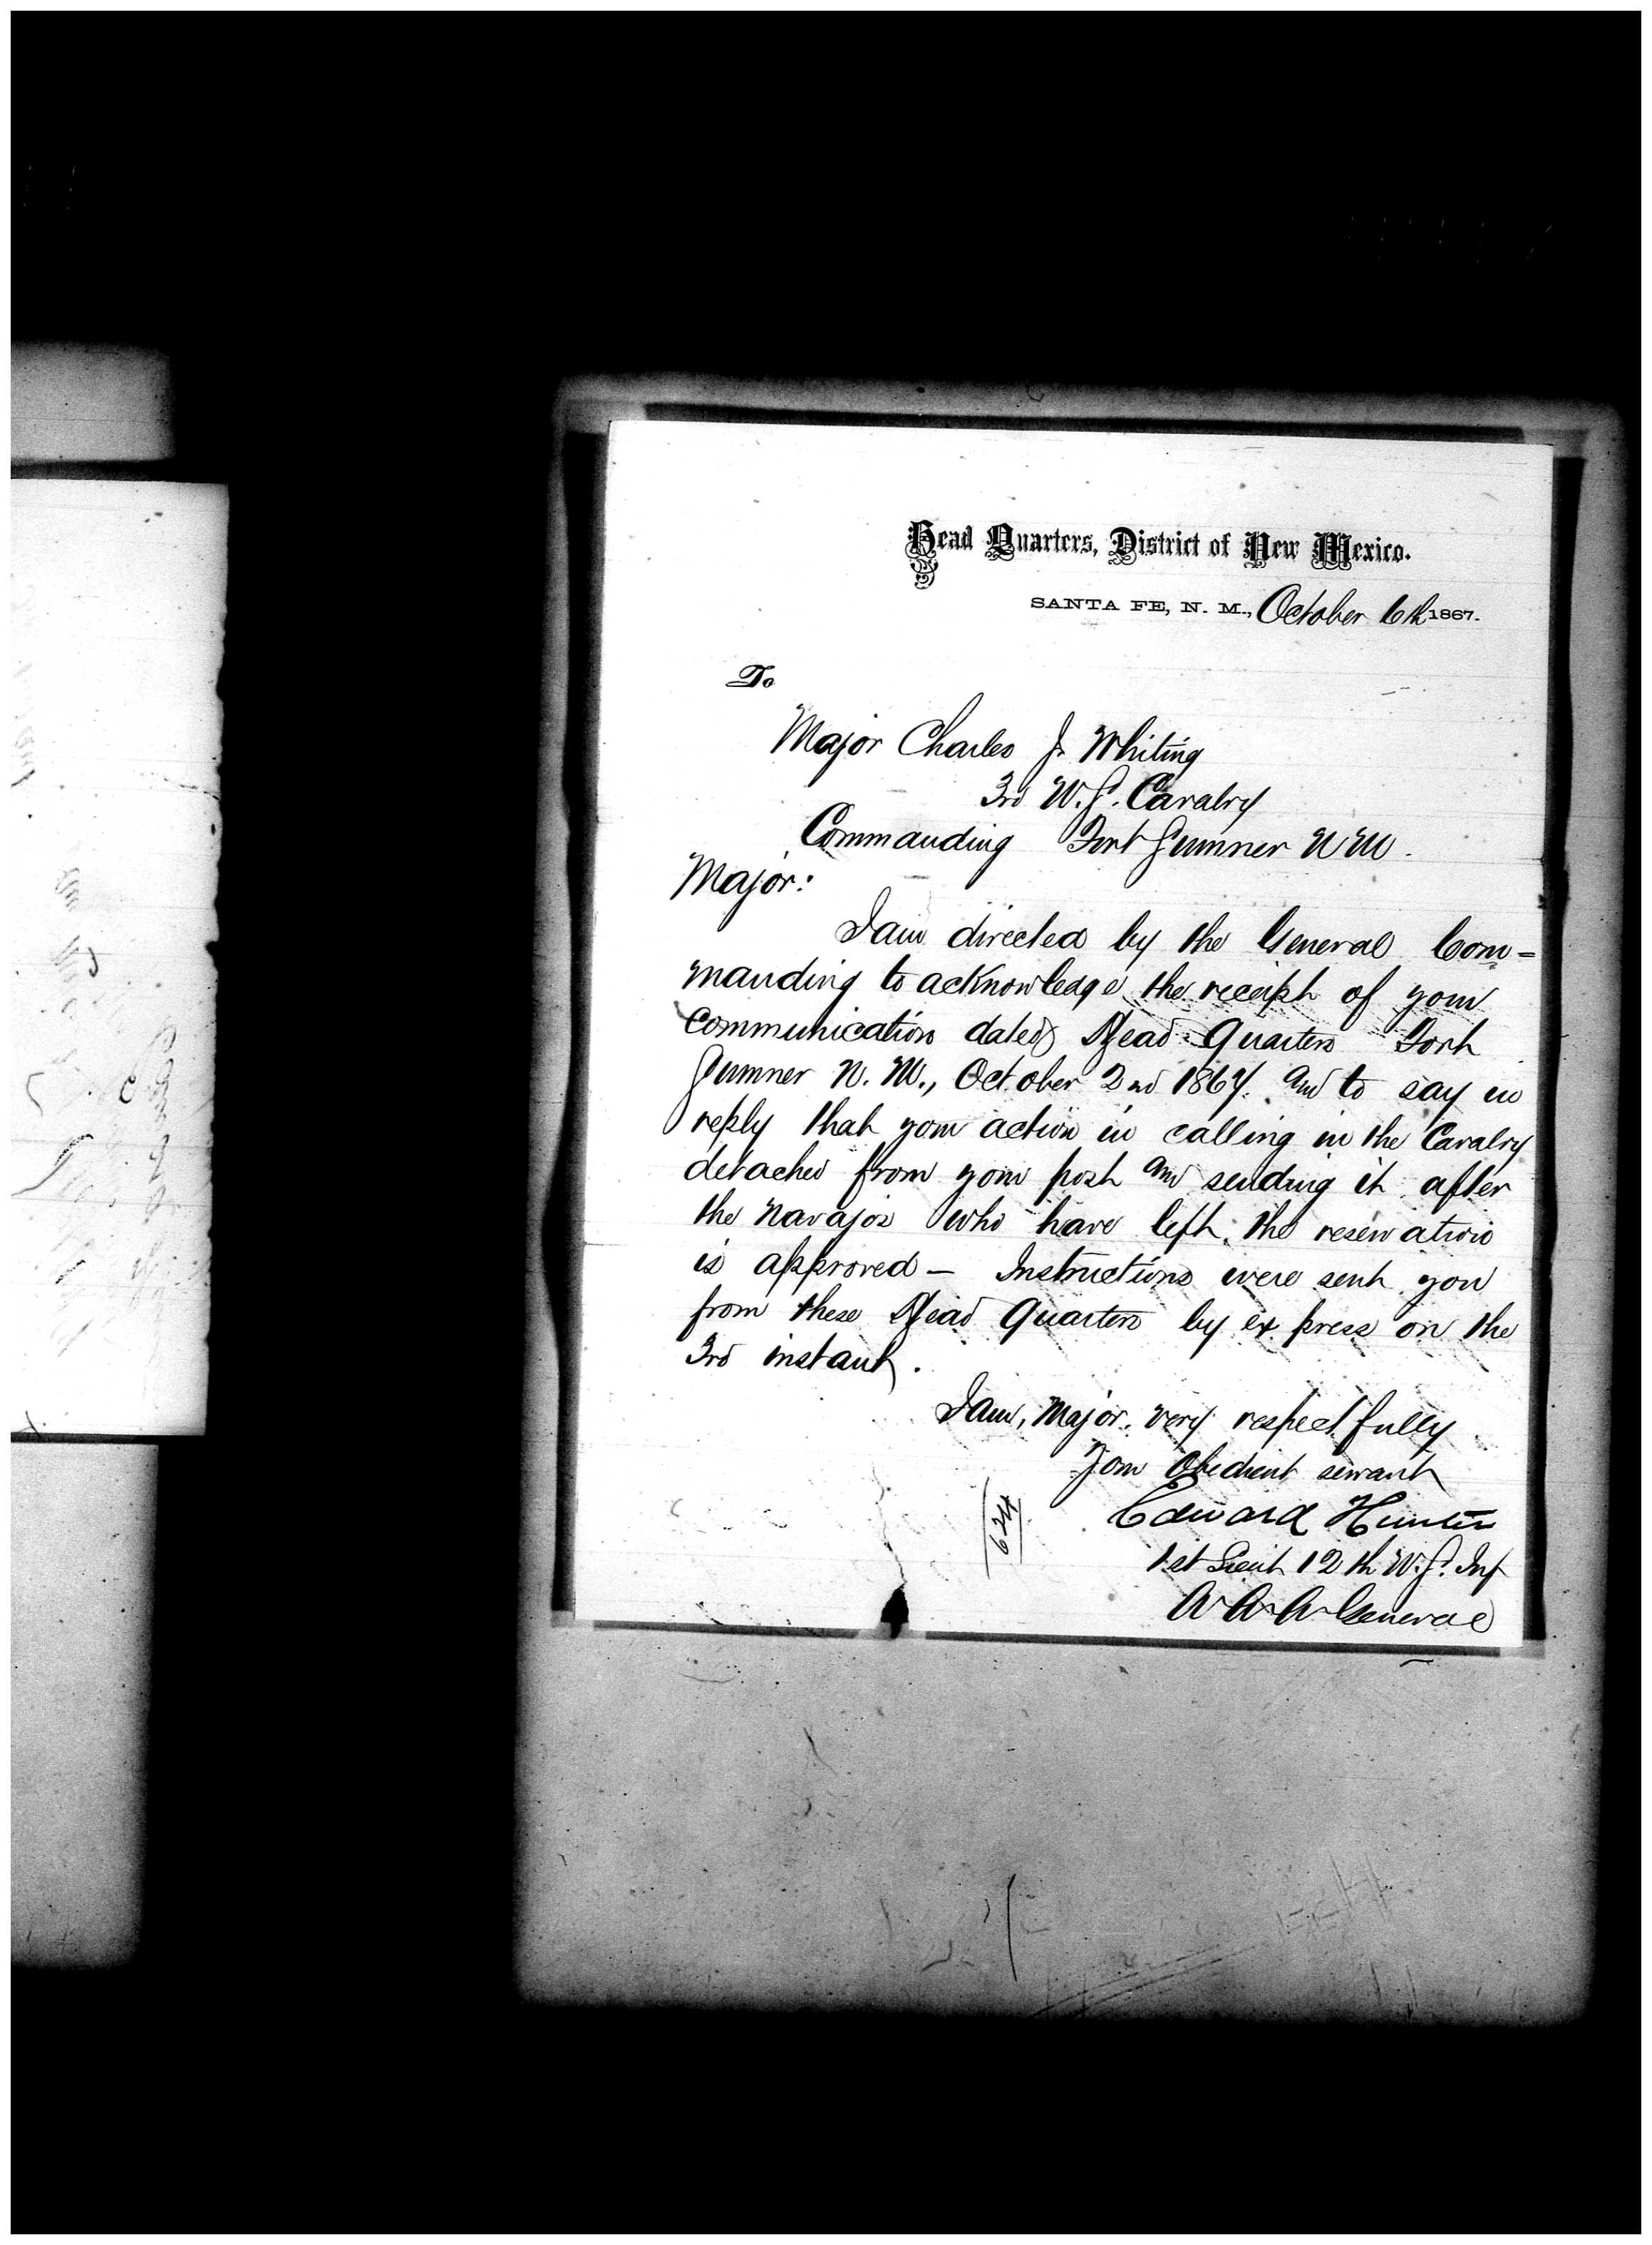 Head Quarters, District of New Mexico.
SANTA FE, N. M., October 6th 1867.
To
Major Charles J. Whiting
3rd U.S. Cavalry
Commanding Fort Sumner N M.
Major:
I am directed by the General Com=
manding to acknowledge the receipt of your
communication dated Head Quarters Fort
Sumner N. M., October 2nd 1867. and to say in
reply that your action in calling in the Cavalry
detached from your post and sending it after
the Navajos who have left the reservation
is approved — Instructions were sent you
from these Head Quarters by express on the
3rd instant.
I am, Major, very respectfully
Your Obedient servant
Edward Hunter
1st Lieut 12th U.S. Inf
A A A General
624